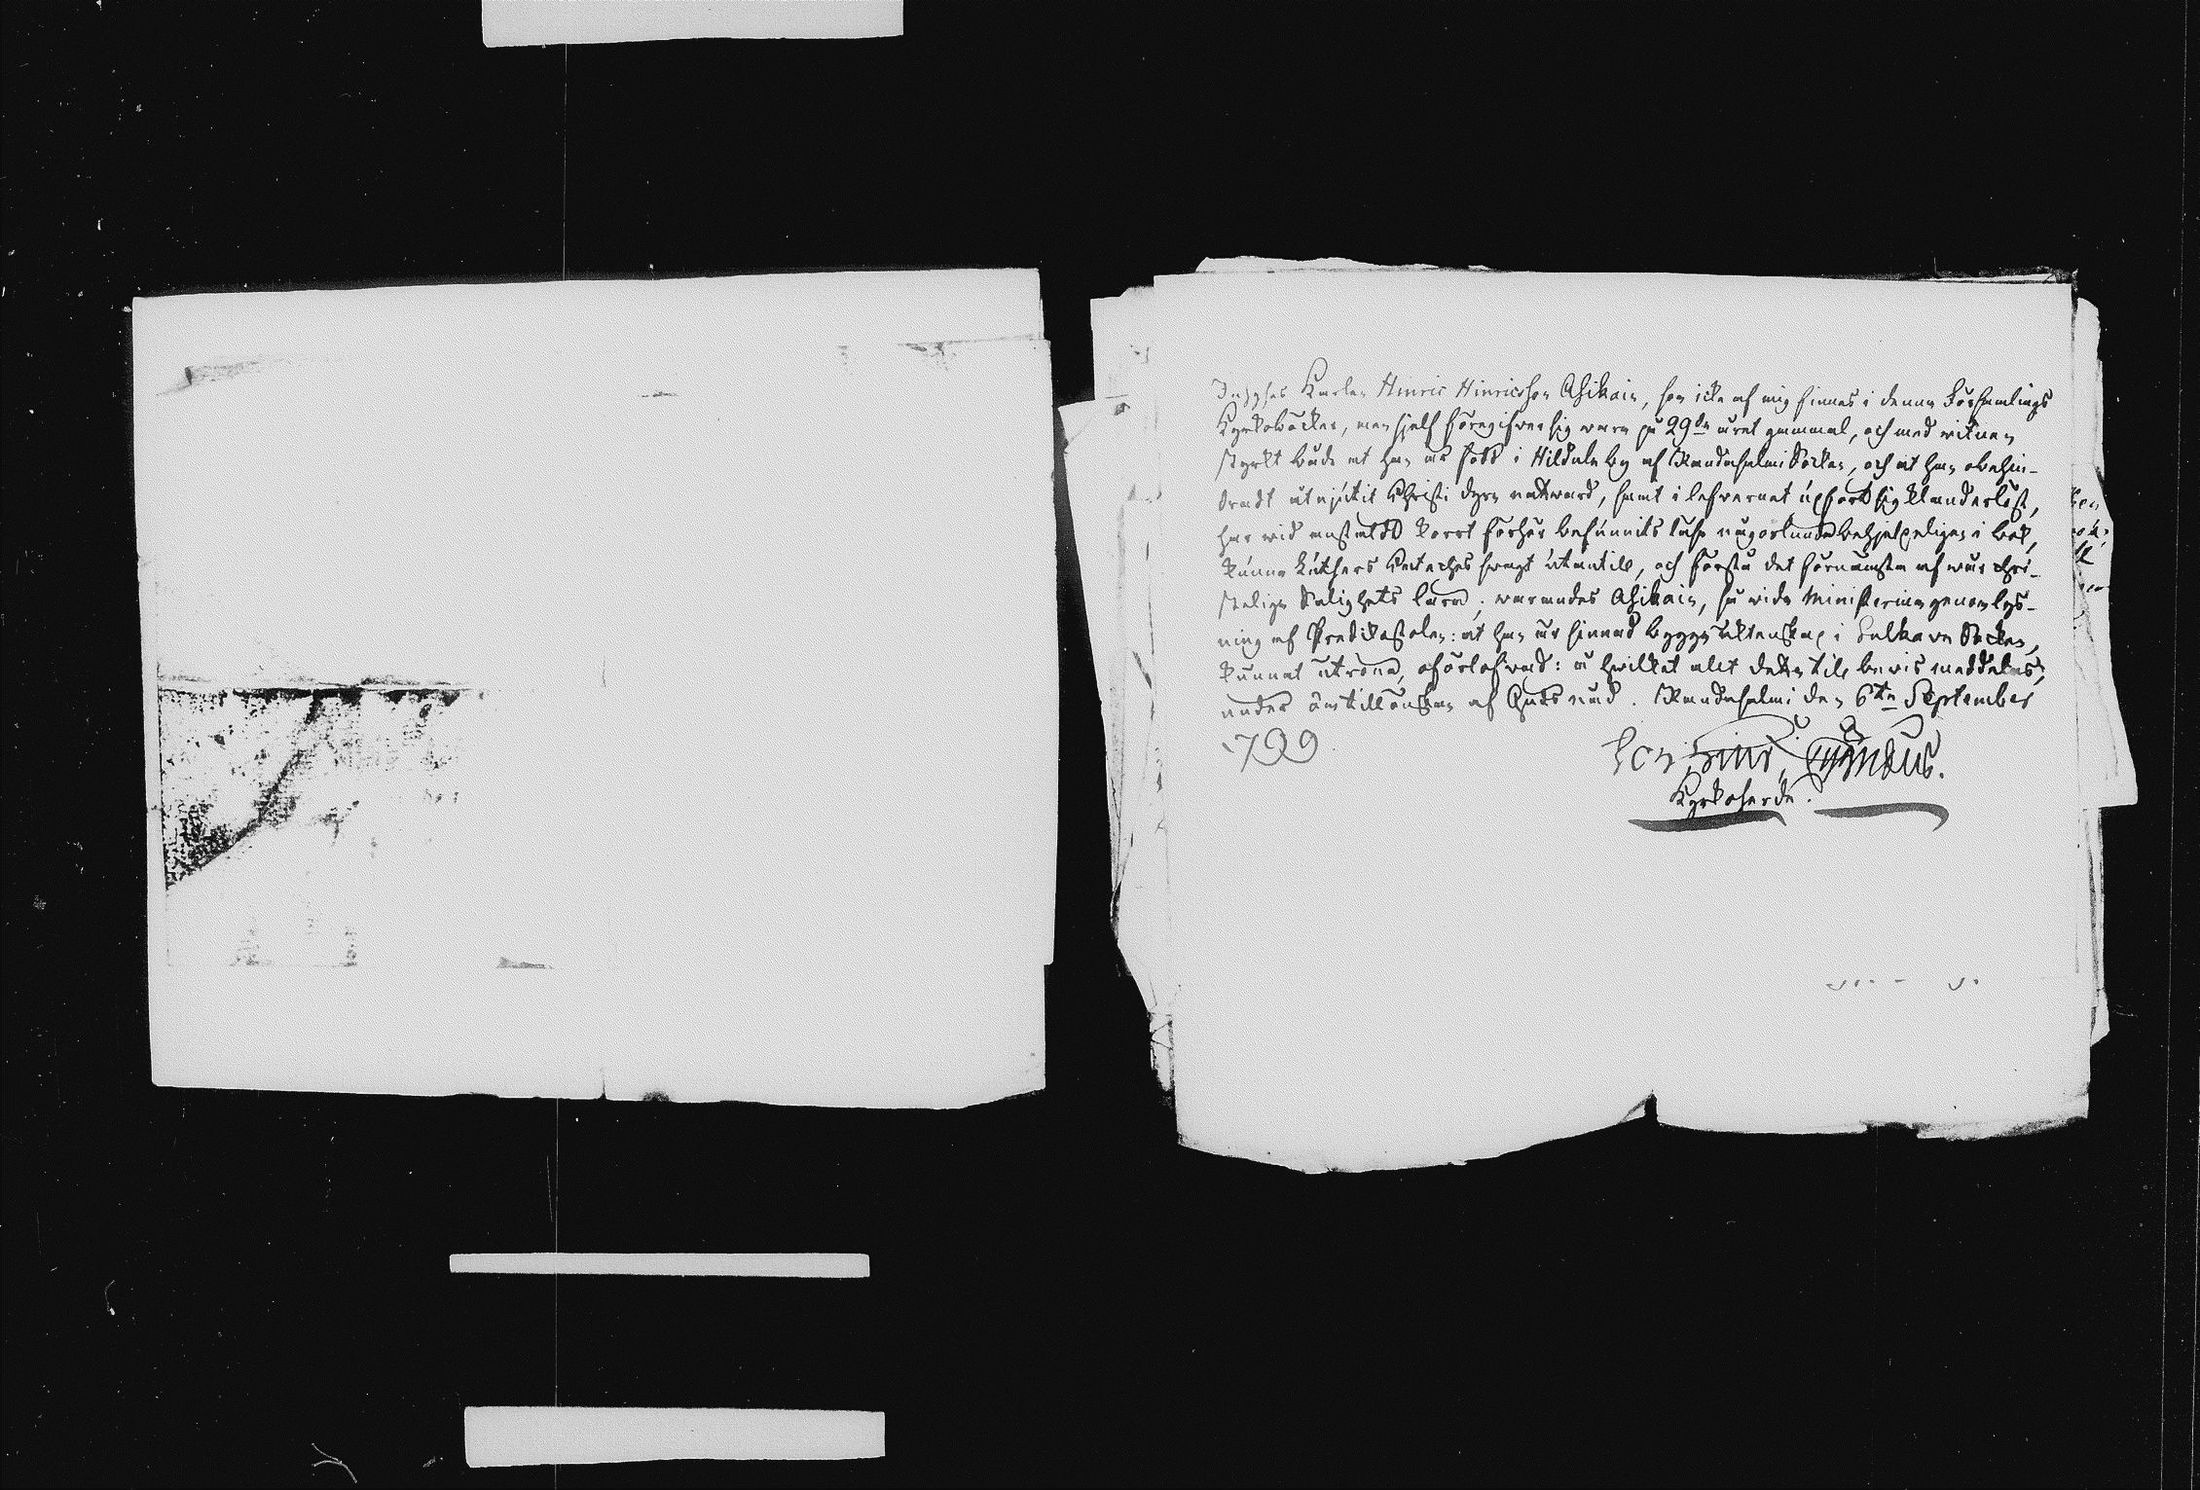 Inhyses Karlen Hinric Hinricsson Asikain, som icke af mig finnes i denna Församlings
Kyrkoböcker, men sjelf föregifver sig vara på 29de året gammal, och med witnen
styrkt både at han är född i Hildula by af Randasalmi Sócken, och at han obehin-
dradt utnjutit Christi dyra nattward, samt i lefvernet upfört sig klanderlöst,
har wid anstäldt korrt förhör befunnits läsa någorlunda behjelpeligen i bok,
kunna Luthers Cateches swagt utantill, och förstå det förnämsta af wår chri-
steliga Salighets lära; warandes Asikain, så wida Ministerium genom lys-
ning af Predikostolen: at han är sinnad bygga äktenskap i Sulkava Socken,
kunnat utröna, oförlofvad: å hwilket alt detta till bewis meddelas,
under önskan af Guds nåd. Randasalmi den 6te September
1799.
Kyrkoherde.